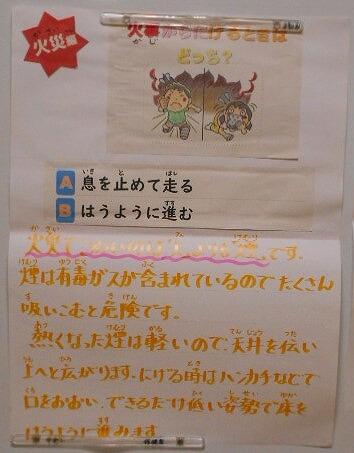 火災編
火事からにげるときは
どっち？
A 息を止めて走る
B はうように進む
火災で です。
煙は有毒ガスが含まれているのでたくさん
吸いこむと危険です。
熱くなった煙は軽いので、天井を伝い
上へと広がります。にげる時はハンカチなどで
口をおおい、できるだけ低い姿勢で床を
はうように進みます。